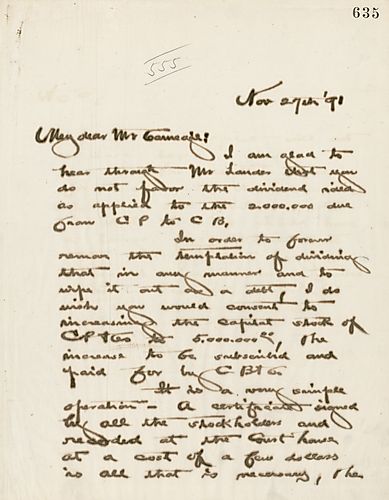 635
555
Nov 27th '91
My dear Mr Carnegie:
I am glad to
hear through Mr Lauder that you
do not favor the dividend idea
as applied to the 2.000.000 due
from C P to C B.
In order to forever
remove the temptation of dividing
that in any manner and to
wipe it out as a debt, I do
wish you would consent to
increasing the capital stock of
C P & Co to 5.000.000 00, the
increase to be subscribed and
paid for by C B & Co
It is a very simple
operation — A certificate signed
by all the stockholders and
recorded at the Court house
at a cost of a few dollars
is all that is necessary, the